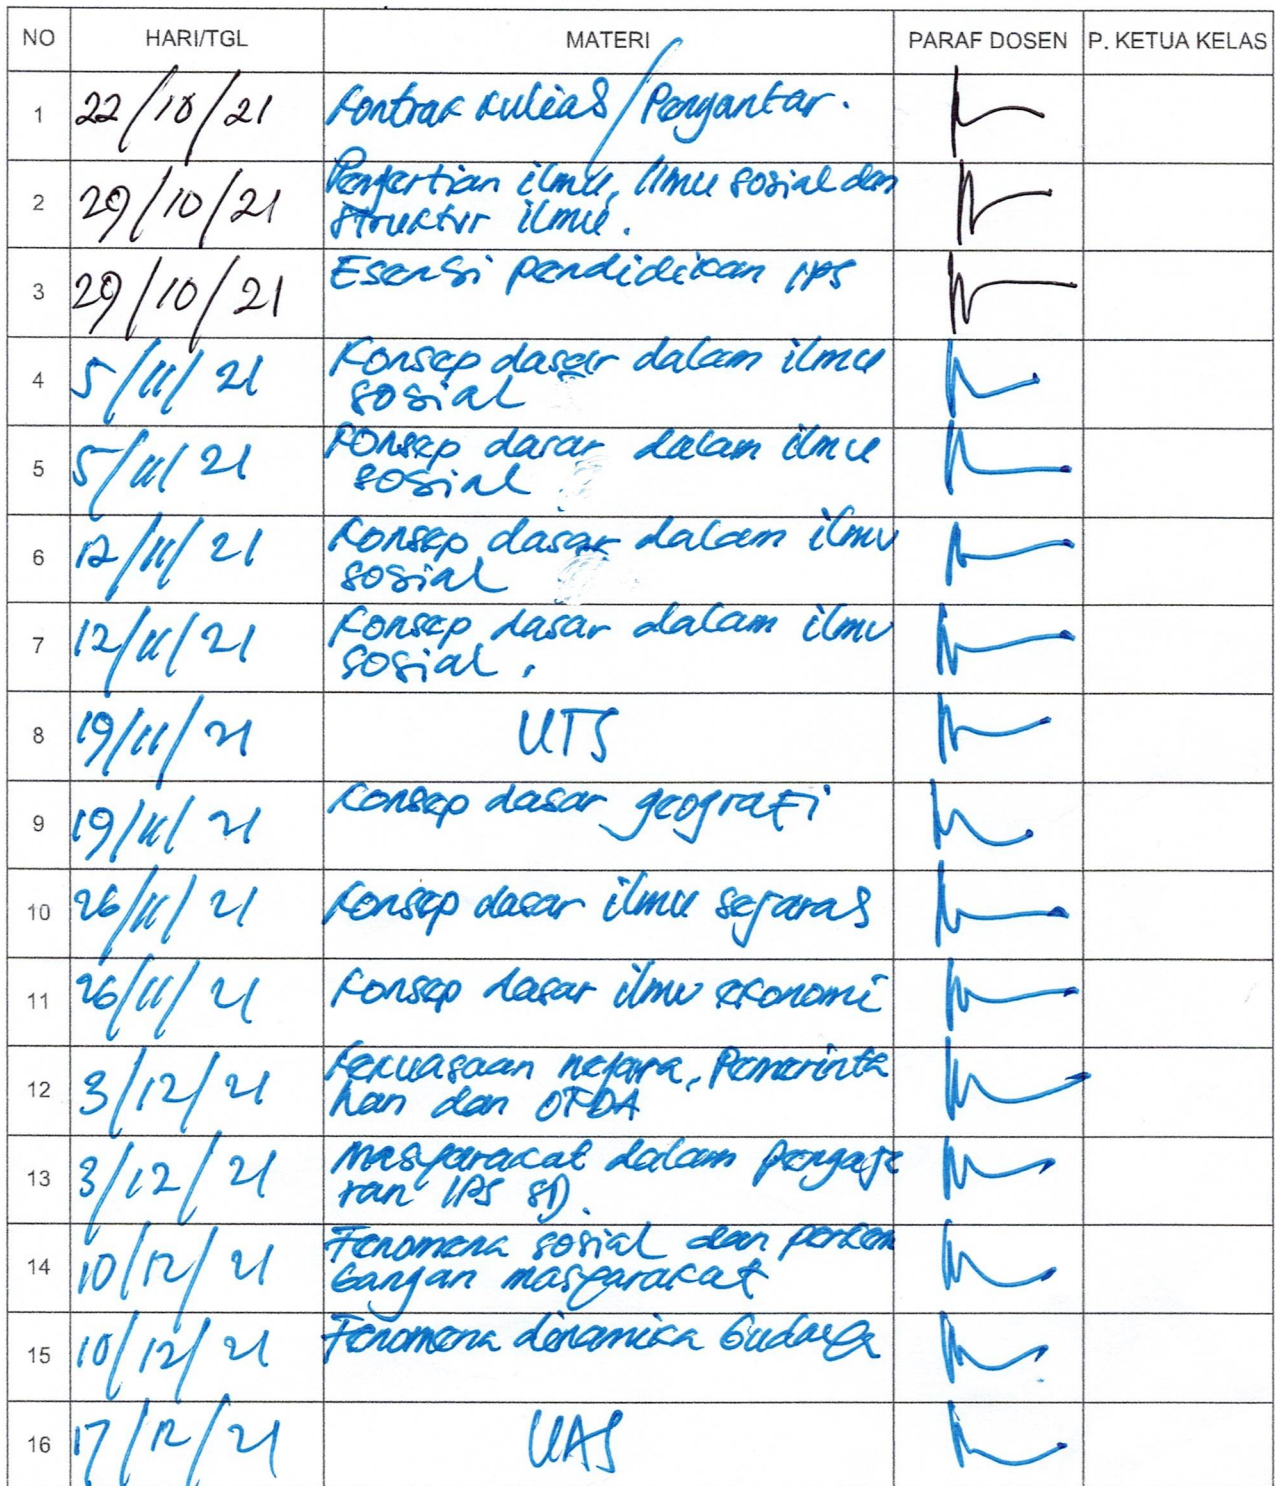 NO HARI/TGL MATERI PARAF DOSEN P. KETUA KELAS
1 22/10/21 Kontrak kuliah/Pengantar.
2 29/10/21 Pengertian ilmu, ilmu sosial dan
struktur ilmu.
3 29/10/21 Esensi pendidikan IPS
4 5/11/21 Konsep dasar dalam ilmu
sosial
5 5/11/21 Konsep dasar dalam ilmu
sosial
6 12/11/21 Konsep dasar dalam ilmu
sosial
7 12/11/21 Konsep dasar dalam ilmu
sosial.
8 19/11/21 UTS
9 19/11/21 Konsep dasar geografi
10 26/11/21 Konsep dasar ilmu sejarah
11 26/11/21 Konsep dasar ilmu ekonomi
12 3/12/21 Kekuasaan negara, Pemerinta
han dan OTDA
13 3/12/21 Masyarakat dalam pengaja
ran IPS SD.
14 10/12/21 Fenomena sosial dan perkem
bangan masyarakat
15 10/12/21 Fenomena dinamika budaya
16 17/12/21 UAS